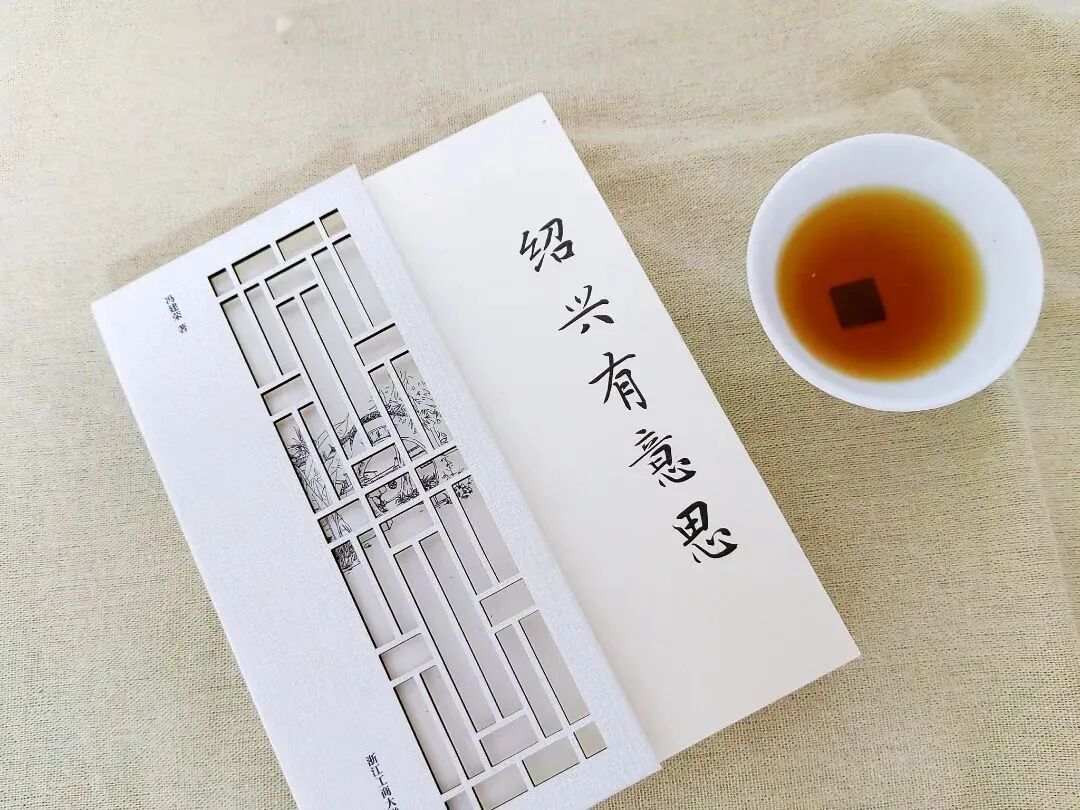 绍兴有意思
冯建荣 著
浙江工商大